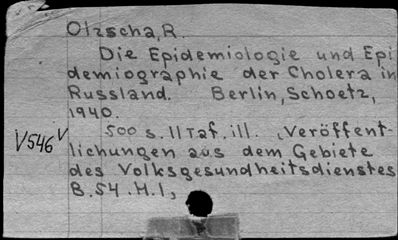 Olzscha, R.
Die Epidemiologie und Epi
demiographie der Cholera in
Russland. Berlin, Schoetz,
1940.
500 s. II Taf. ill. (Veröffent-
lichungen aus dem Gebiete
des Volksgesundheitsdienstes
B. 54. H. 1,
V546 V